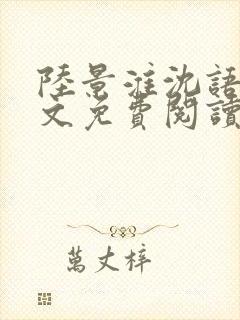 陸景淮沈語
文免費閱讀
萬丈梓